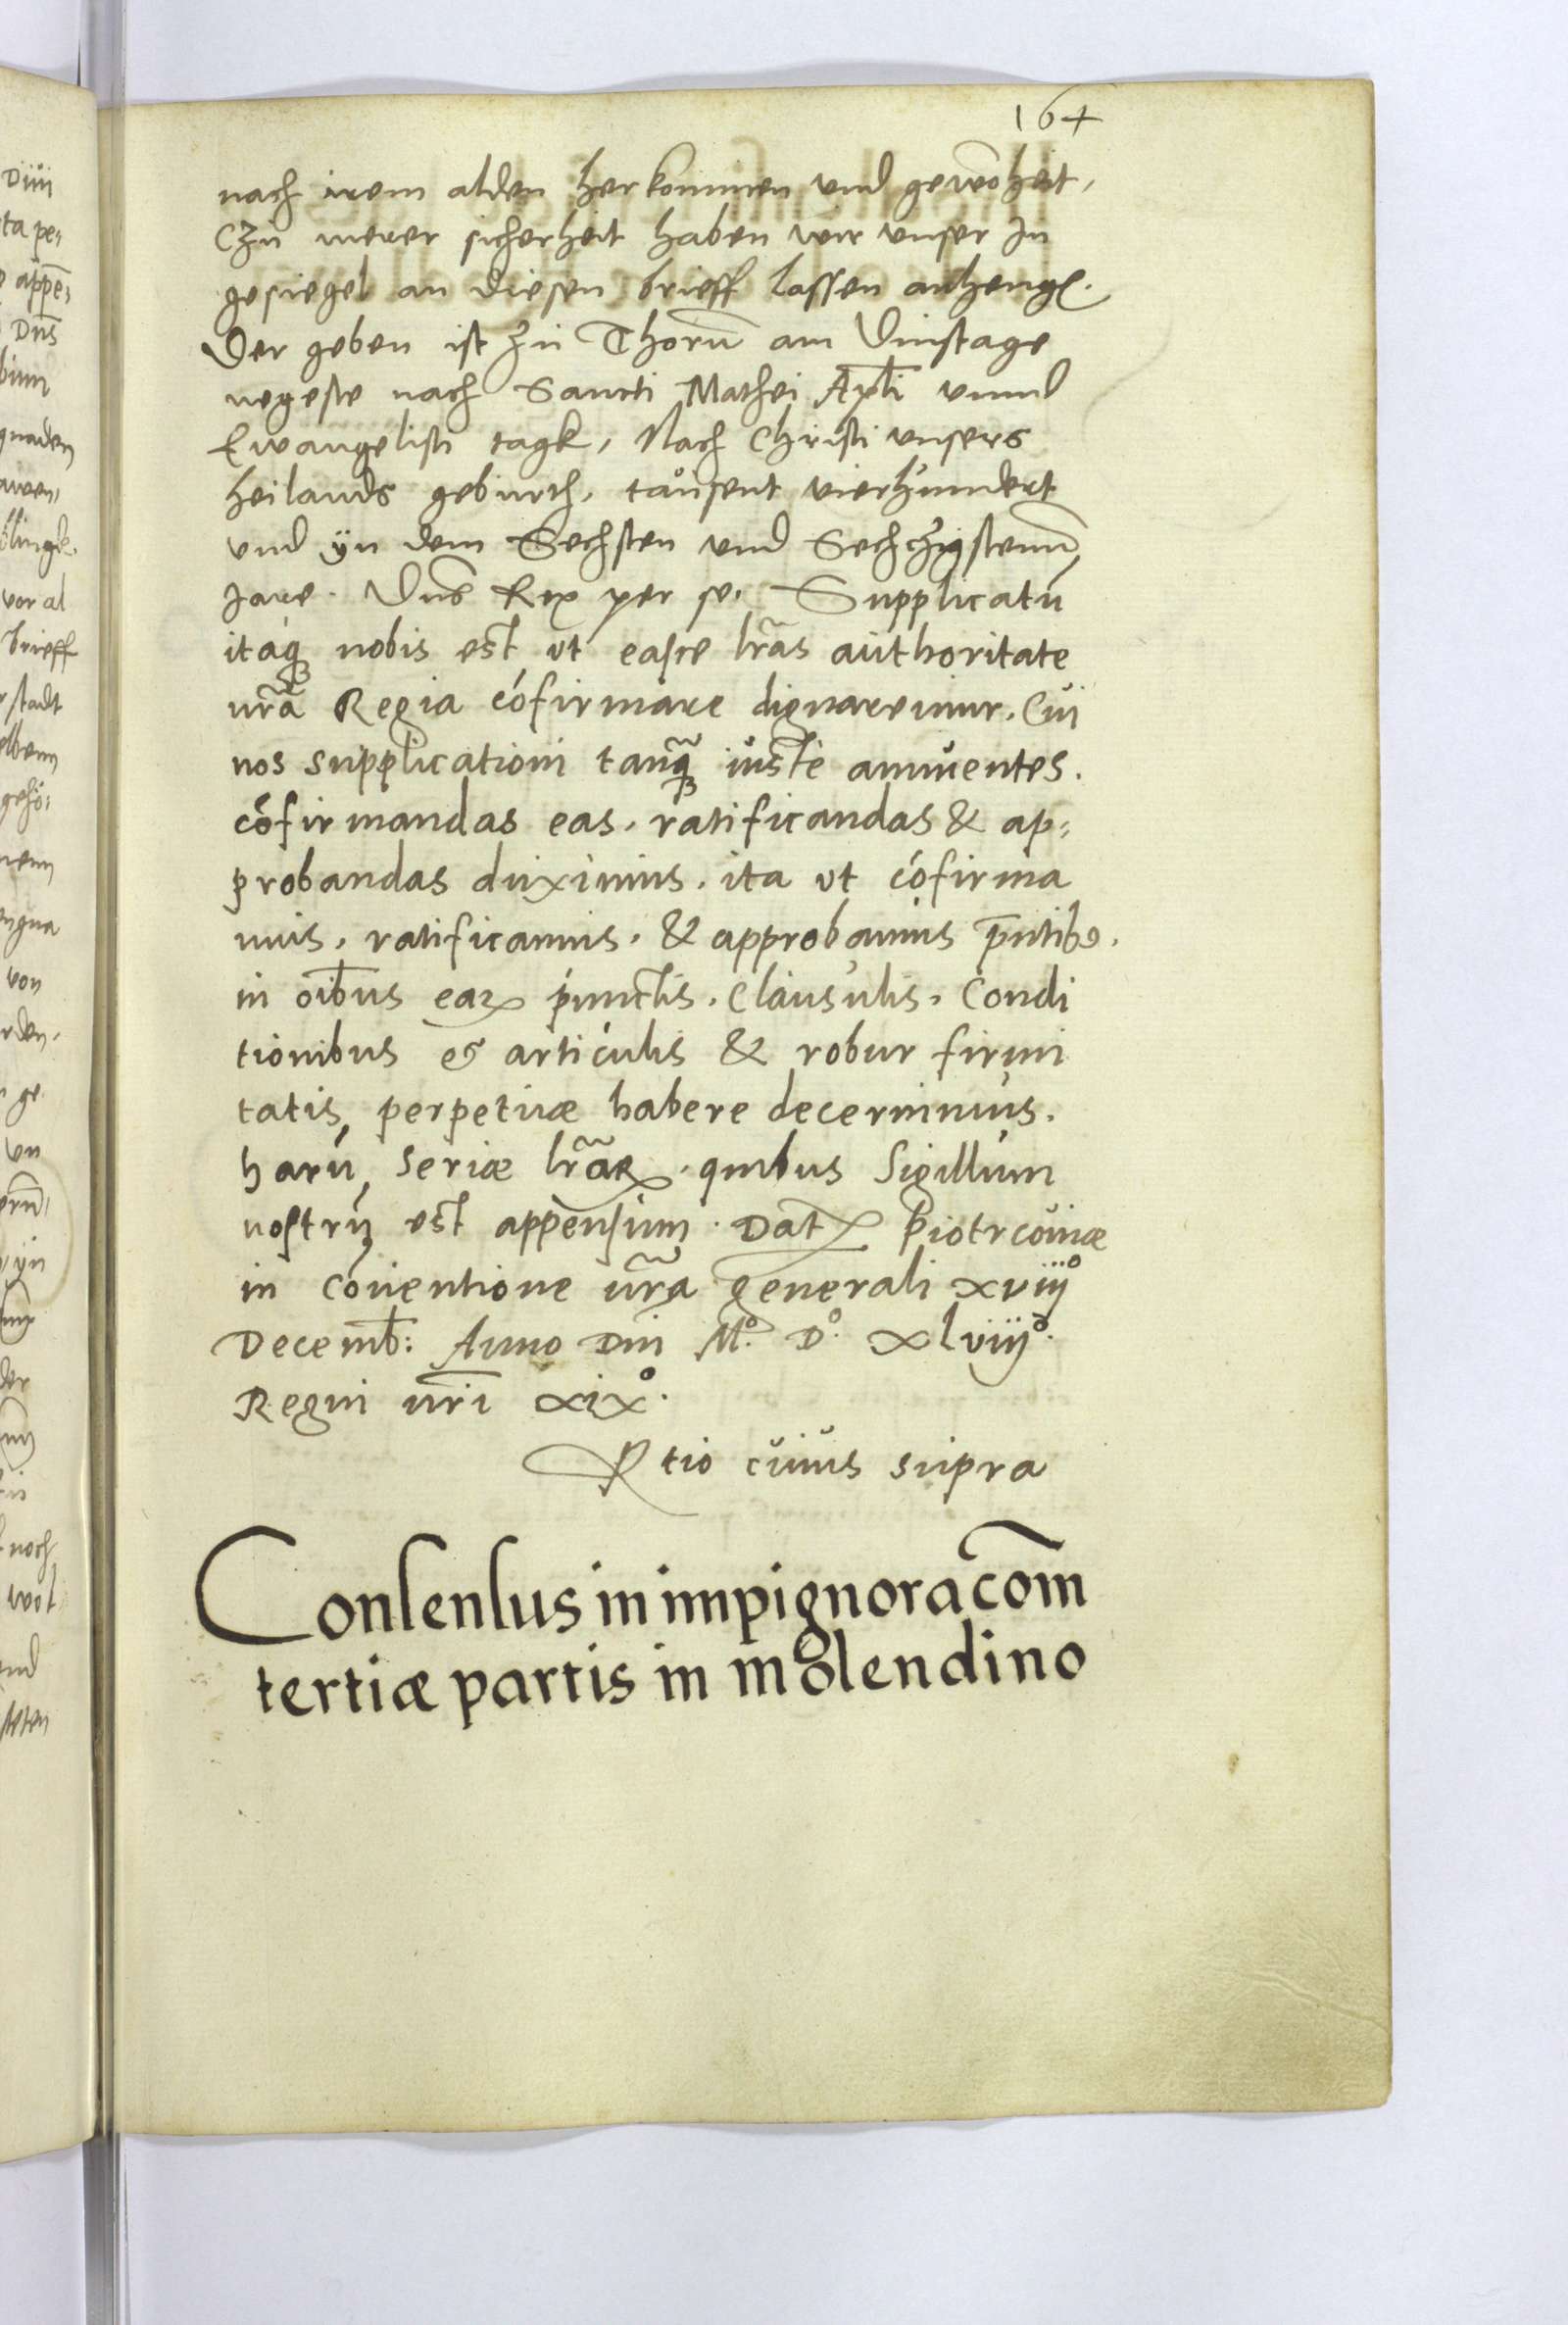 164
nach irem alden herkommen vnd gewõheit,
Czu merer sicherheit haben wir vnser In
gesiegel an diesen brieff lassen anheng.
Der geben ist zu Thorũ am Dinstage
negeste nach Sancti Mathei Apl̃i vnnd
Ewangelisti tagk, Nach Christi vnsers
heilands geburth, taůsent vierhundert
vnd ÿn dem Sechsten vnd Sechczigstenn̄
Jare. Dns̄ Rex per se. Supplicatū
itaq₃ nobis est vt easce lr̃as authoritate
nr̃a Regia cōfirmare dignaremur. Cui
nos supplicationi tanq̃₃ iuste annuentes.
cōfirmandas eas, ratificandas & ap=
probandas duximus. ita vt cōfirma
mus, ratificamus, & approbamus p̄ntibꝰ.
in oībus eaꝝ punctis, Clausulis, Condi
tionibus et articulis & robur firmi
tatis perpetuæ habere decernimus.
harū seriæ lr̃aꝝ. quibus Sigillum
nostrū est appensum. Datꝝ Piotrcouiæ
in cōuentione nr̃a generali xviijº
Decemb: Anno Dni Mº. Dº. xlviijº.
Regni nr̄i xixº.
Rtio cuius supra
Consensus in impignoracōm
tertiæ partis in molendino
Diui
ta pe,
appē,
Dns̄
gnaden
vor al
brieff
stadt
von
rden.
ge.
vn
yn
der
noch
wol